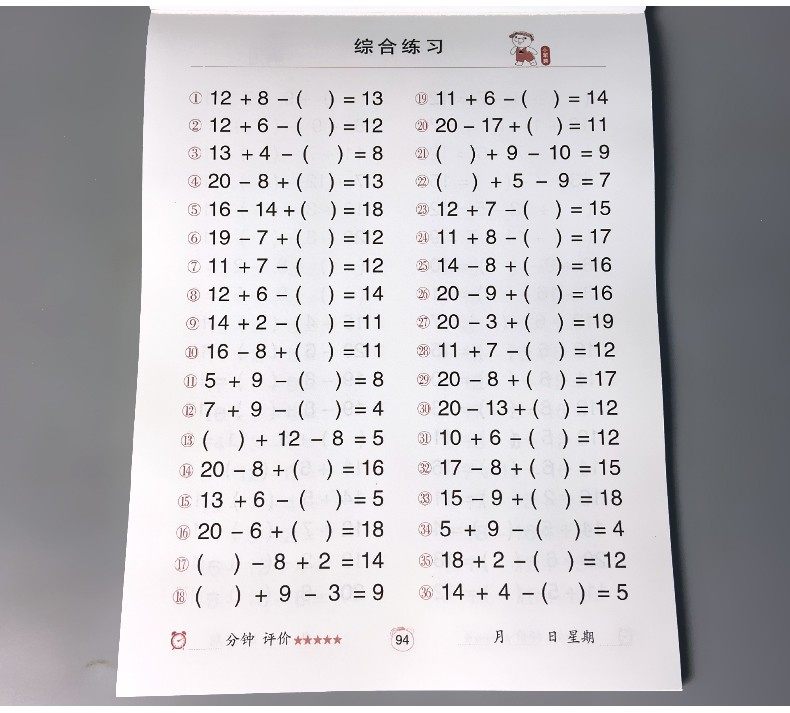 综合练习
① 12 + 8 - (  ) = 13
② 12 + 6 - (  ) = 12
③ 13 + 4 - (  ) = 8
④ 20 - 8 + (  ) = 13
⑤ 16 - 14 + (  ) = 18
⑥ 19 - 7 + (  ) = 12
⑦ 11 + 7 - (  ) = 12
⑧ 12 + 6 - (  ) = 14
⑨ 14 + 2 - (  ) = 11
⑩ 16 - 8 + (  ) = 11
⑪ 5 + 9 - (  ) = 8
⑫ 7 + 9 - (  ) = 4
⑬ (  ) + 12 - 8 = 5
⑭ 20 - 8 + (  ) = 16
⑮ 13 + 6 - (  ) = 5
⑯ 20 - 6 + (  ) = 18
⑰ (  ) - 8 + 2 = 14
⑱ (  ) + 9 - 3 = 9
⑲ 11 + 6 - (  ) = 14
⑳ 20 - 17 + (  ) = 11
㉑ (  ) + 9 - 10 = 9
㉒ (  ) + 5 - 9 = 7
㉓ 12 + 7 - (  ) = 15
㉔ 11 + 8 - (  ) = 17
㉕ 14 - 8 + (  ) = 16
㉖ 20 - 9 + (  ) = 16
㉗ 20 - 3 + (  ) = 19
㉘ 11 + 7 - (  ) = 12
㉙ 20 - 8 + (  ) = 17
㉚ 20 - 13 + (  ) = 12
㉛ 10 + 6 - (  ) = 12
㉜ 17 - 8 + (  ) = 15
㉝ 15 - 9 + (  ) = 18
㉞ 5 + 9 - (  ) = 4
㉟ 18 + 2 - (  ) = 12
㊱ 14 + 4 - (  ) = 5
分钟 评价★★★★★ 94 月 日 星期